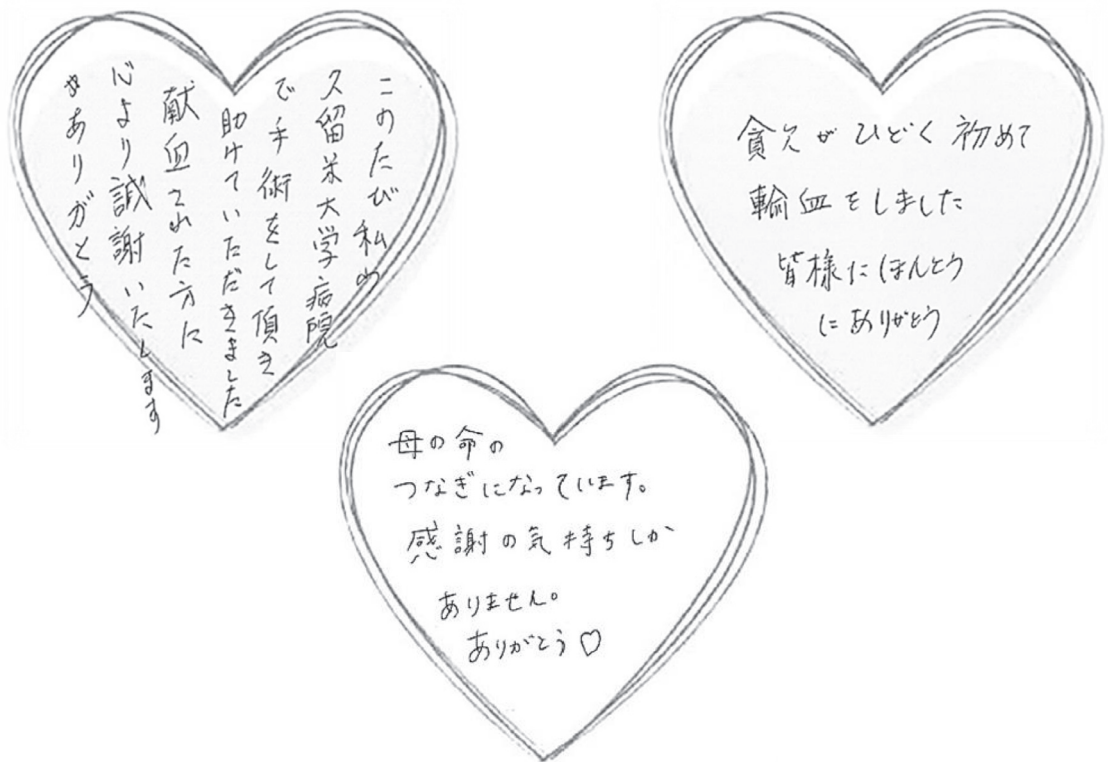 このたび私の
久留米大学病院
で手術をして頂き
助けていただきました
献血された方に
心より誠謝いたします
ありがとう
貧欠がひどく初めて
輪血をしました
皆様にほんとう
にありがとう
母の命の
つなぎになっています。
感謝の気持ちしか
ありません。
ありがとう♡